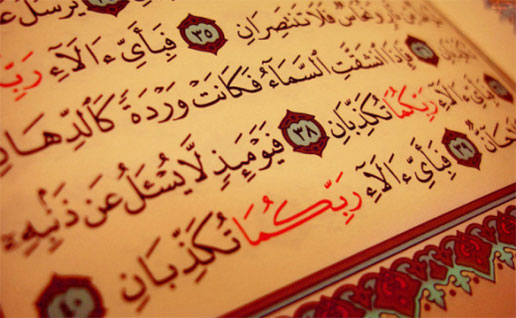 يُرْسَلُ
نَّارٍ وَنُحَاسٌ فَلَا تَنتَصِرَانِ ٣٥ فَبِأَيِّ ءَالَآءِ رَبِّ
فَإِذَا ٱنشَقَّتِ ٱلسَّمَآءُ فَكَانَتْ وَرْدَةً كَٱلدِّهَانِ
فَبِأَيِّ ءَالَآءِ رَبِّكُمَا تُكَذِّبَانِ ٣٨ فَيَوْمَئِذٍ لَّا يُسْـَٔلُ عَن ذَنۢبِهِۦٓ
جَآنٌّ ٣٩ فَبِأَيِّ ءَالَآءِ رَبِّكُمَا تُكَذِّبَانِ ٤٠